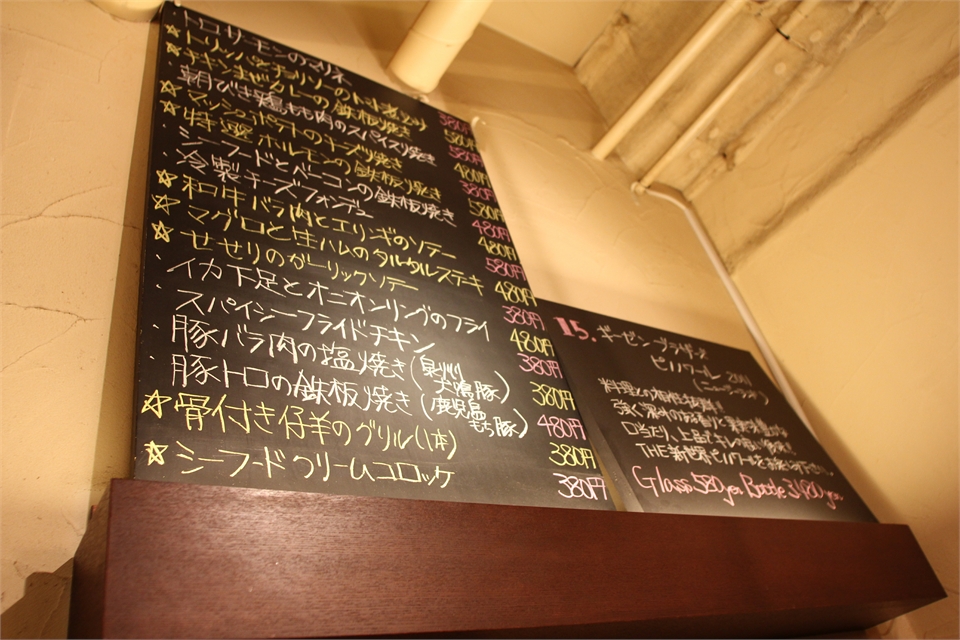 トロサーモンのマリネ
☆トリッパとチョリソーのトマト煮込み 380円
☆チキンと彩りカレーの鉄板焼き 580円
・朝びき鶏もも肉のスパイス焼き 580円
☆マッシュポテトのチーズ焼き 480円
☆特製ホルモンの鉄板焼き 380円
・シーフードとベーコンの鉄板焼き 580円
・冷製チーズフォンデュ 480円
☆和牛バラ肉とエリンギのソテー 480円
☆マグロと生ハムのタルタルステキ 580円
☆せせりのガーリックソテー 480円
・イカ下足とオニオンリングのフライ 380円
・スパイシーフライドチキン 480円
・豚バラ肉の塩焼き(泉州犬鳴豚) 380円
・豚トロの鉄板焼き(鹿児島もち豚) 380円
☆骨付き仔羊のグリル(1本) 480円
☆シーフードクリームコロッケ 380円
380円
15. ギーゼン ブラザーズ
ピノノワール
料理との相性抜群!
THE 新世界ピノノワールを
Glass 580yen Bottle 3480yen